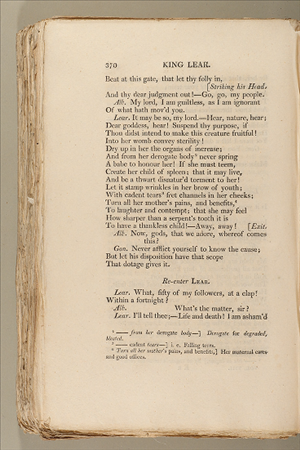 370 KING LEAR.
Beat at this gate, that let thy folly in,
[Striking his Head.
And thy dear judgment out!—Go, go, my people.
Alb. My lord, I am guiltless, as I am ignorant
Of what hath mov'd you.
Lear. It may be so, my lord.—Hear, nature, hear;
Dear goddess, hear! Suspend thy purpose, if
Thou didst intend to make this creature fruitful!
Into her womb convey sterility!
Dry up in her the organs of increase;
And from her derogate body⁷ never spring
A babe to honour her! If she must teem,
Create her child of spleen; that it may live,
And be a thwart disnatur'd torment to her!
Let it stamp wrinkles in her brow of youth;
With cadent tears⁸ fret channels in her cheeks;
Turn all her mother's pains, and benefits,⁹
To laughter and contempt; that she may feel
How sharper than a serpent's tooth it is
To have a thankless child!—Away, away! [Exit.
Alb. Now, gods, that we adore, whereof comes
this?
Gon. Never afflict yourself to know the cause;
But let his disposition have that scope
That dotage gives it.
Re-enter LEAR.
Lear. What, fifty of my followers, at a clap!
Within a fortnight?
Alb. What's the matter, sir?
Lear. I'll tell thee;—Life and death! I am asham'd
⁷ —— from her derogate body—] Derogate for degraded,
blasted.
⁸ —— cadent tears—] i. e. Falling tears.
⁹ Turn all her mother's pains, and benefits,] Her maternal cares
and good offices.